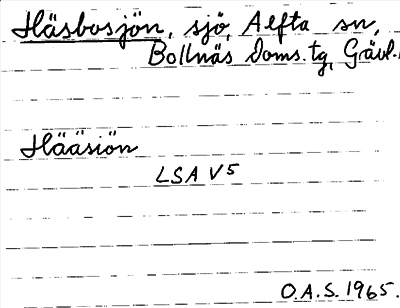 Häsbosjön, sjö, Alfta sn,
Bollnäs Doms.tg, Gävl.
Hääsiön
LSA V5
O.A.S. 1965.